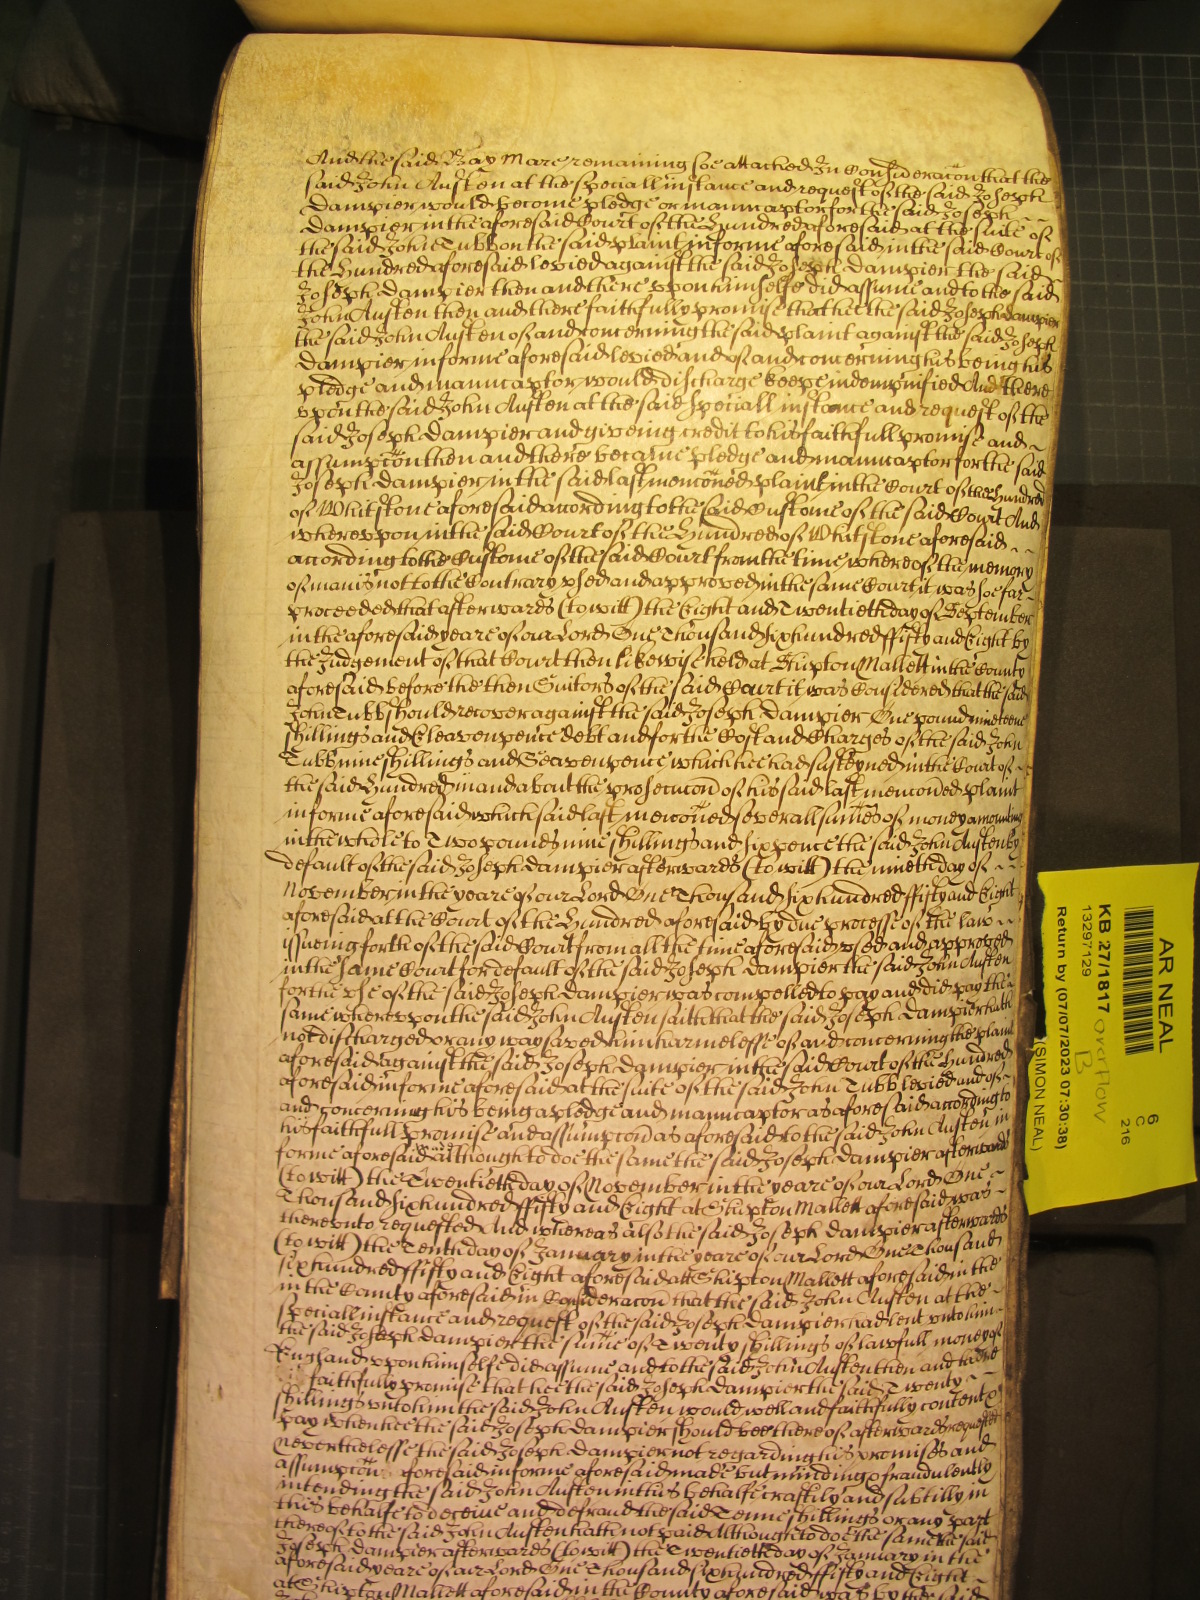 And the said Bay Mare remaining soe attached In Consideracon that the
said John Austen at the speciall instance and request of the said Joseph
Dampier would become pledge or manucaptor for the said Joseph
Dampier in the aforesaid Court of the Hundred aforesaid at the suite of
the said John Tubb on the said plaint in forme aforesaid in the said Court of
the Hundred aforesaid levied against the said Joseph Dampier the said
Joseph Dampier then and there vpon himselfe did assume and to the said
John Austen then and there faithfully promise that hee the said Joseph Dampier
the said John Austen of and concerning the said plaint against the said Joseph
Dampier in forme aforesaid levied and of and concerning his being his
pledge and manucaptor would discharge keepe indempnified And there
vpon the said John Austen at the said speciall instance and request of the
said Joseph Dampier and giveing credit to his faithfull promise and
assumpcon then and there became pledge and manucaptor for the said
Joseph Dampier in the said last menconed plaint in the Court of the Hundred
of Whitstone aforesaid according to the said Custome of the said Court And
wherevpon in the said Court of the Hundred of Whitstone aforesaid
according to the Custome of the said Court from the time whereof the memory
of man is not to the Contrary vsed and approved in the same Court it was soe far
proceeded that afterwards (to witt) the Eight and Twentieth day of September
in the aforesaid yeare of our Lord One Thousand six hundred ffifty and Eight by
the Judgement of that Court then likewise held at Shipton Mallett in the County
aforesaid before the then Suitors of the said Court it was Considered that the said
John Tubb should recover against the said Joseph Dampier One pound nineteene
shillings and Eleaven pence debt and for the Cost and Charges of the said John
Tubb nine shillings and Seaven pence which hee had susteyned in the Court of
the said Hundred in and about the prosecucon of his said last menconed plaint
in forme aforesaid which said last menconed severall sumes of money amounting
in the whole to Two pounds nine shillings and six pence the said John Austen by
default of the said Joseph Dampier afterwards (to witt) the nineth day of
November in the yeare of our Lord One Thousand six hundred ffifty and Eight
aforesaid at the Court of the Hundred aforesaid by due processe of the law
issueing forth of the said Court from all the time aforesaid vsed and approved
in the same Court for default of the said Joseph Dampier the said John Austen
for the vse of the said Joseph Dampier was compelled to pay and did pay the
same wherevpon the said John Austen saith that the said Joseph Dampier hath
not discharged or any way saved him harmelesse of and concerning the plaint
aforesaid against the said Joseph Dampier in the said Court of the Hundred
aforesaid in forme aforesaid at the suite of the said John Tubb levied and of
and concerning his being a pledge and manucaptor as aforesaid according to
his faithfull promise and assumpcon as aforesaid to the said John Austen in
forme aforesaid although to doe the same the said Joseph Dampier afterwards
(to witt) the Twentieth day of November in the yeare of our Lord One
Thousand six hundred ffifty and Eight at Shipton Mallett aforesaid was
therevnto requested And whereas alsoe the said Joseph Dampier afterwards
(to witt) the Tenth day of January in the yeare of our Lord One Thousand
six hundred ffifty and Eight aforesaid att Shipton Mallett aforesaid in the
in the County aforesaid in Consideracon that the said John Austen at the
speciall instance and request of the said Joseph Dampier had lent vnto him
the said Joseph Dampier the sume of Twenty shillings of lawfull money of
England vpon himselfe did assume and to the said John Austen then and there
faithfully promise that hee the said Joseph Dampier the said Twenty
shillings vnto him the said John Austen would well and faithfully content &
pay when hee the said Joseph Dampier should bee thereof afterwards requested
Neverthelesse the said Joseph Dampier not regarding his promises and
assumpcon aforesaid in forme aforesaid made but minding & fraudulently
intending the said John Austen in this behalfe craftily and subtilly in
this behalfe to deceive and defraud the said Tenne shillings or any part
thereof to the said John Austen hath not paid Although to doe the same the said
Joseph Dampier afterwards (to witt) the Twentieth day of January in the
aforesaid yeare of our Lord One Thousand six hundred ffifty and Eight
at Shipton Mallett aforesaid in the County aforesaid was by the said
AR NEAL
6
C
216
KB 27/1817 overflow
B
13297129
Return by (07/07/2023 07:30:38)
(SIMON NEAL)